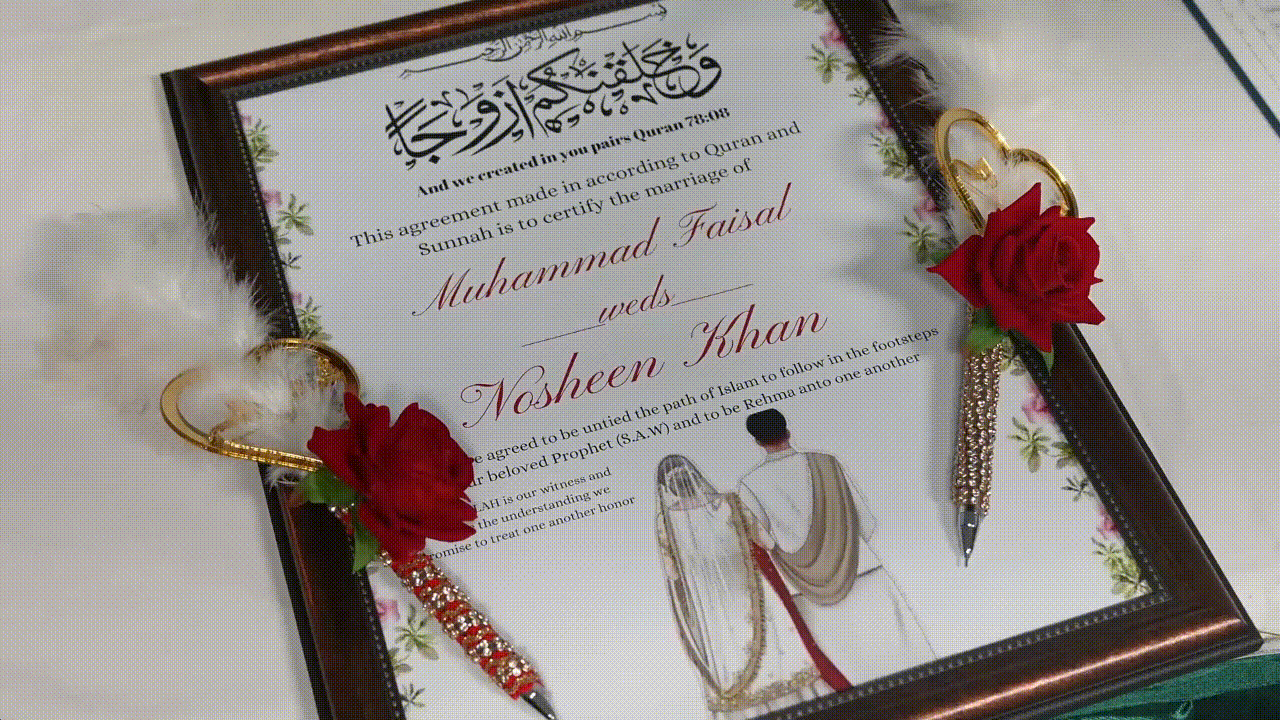 بسم الله الرحمن الرحيم
وخلقنكم ازوجا
And we created in you pairs Quran 78:08
This agreement made in according to Quran and
Sunnah is to certify the marriage of
Muhammad Faisal
weds
Nosheen Khan
agreed to be untied the path of Islam to follow in the footsteps
beloved Prophet (S.A.W) and to be Rehma anto one another
is our witness and
the understanding we
to treat one another honor